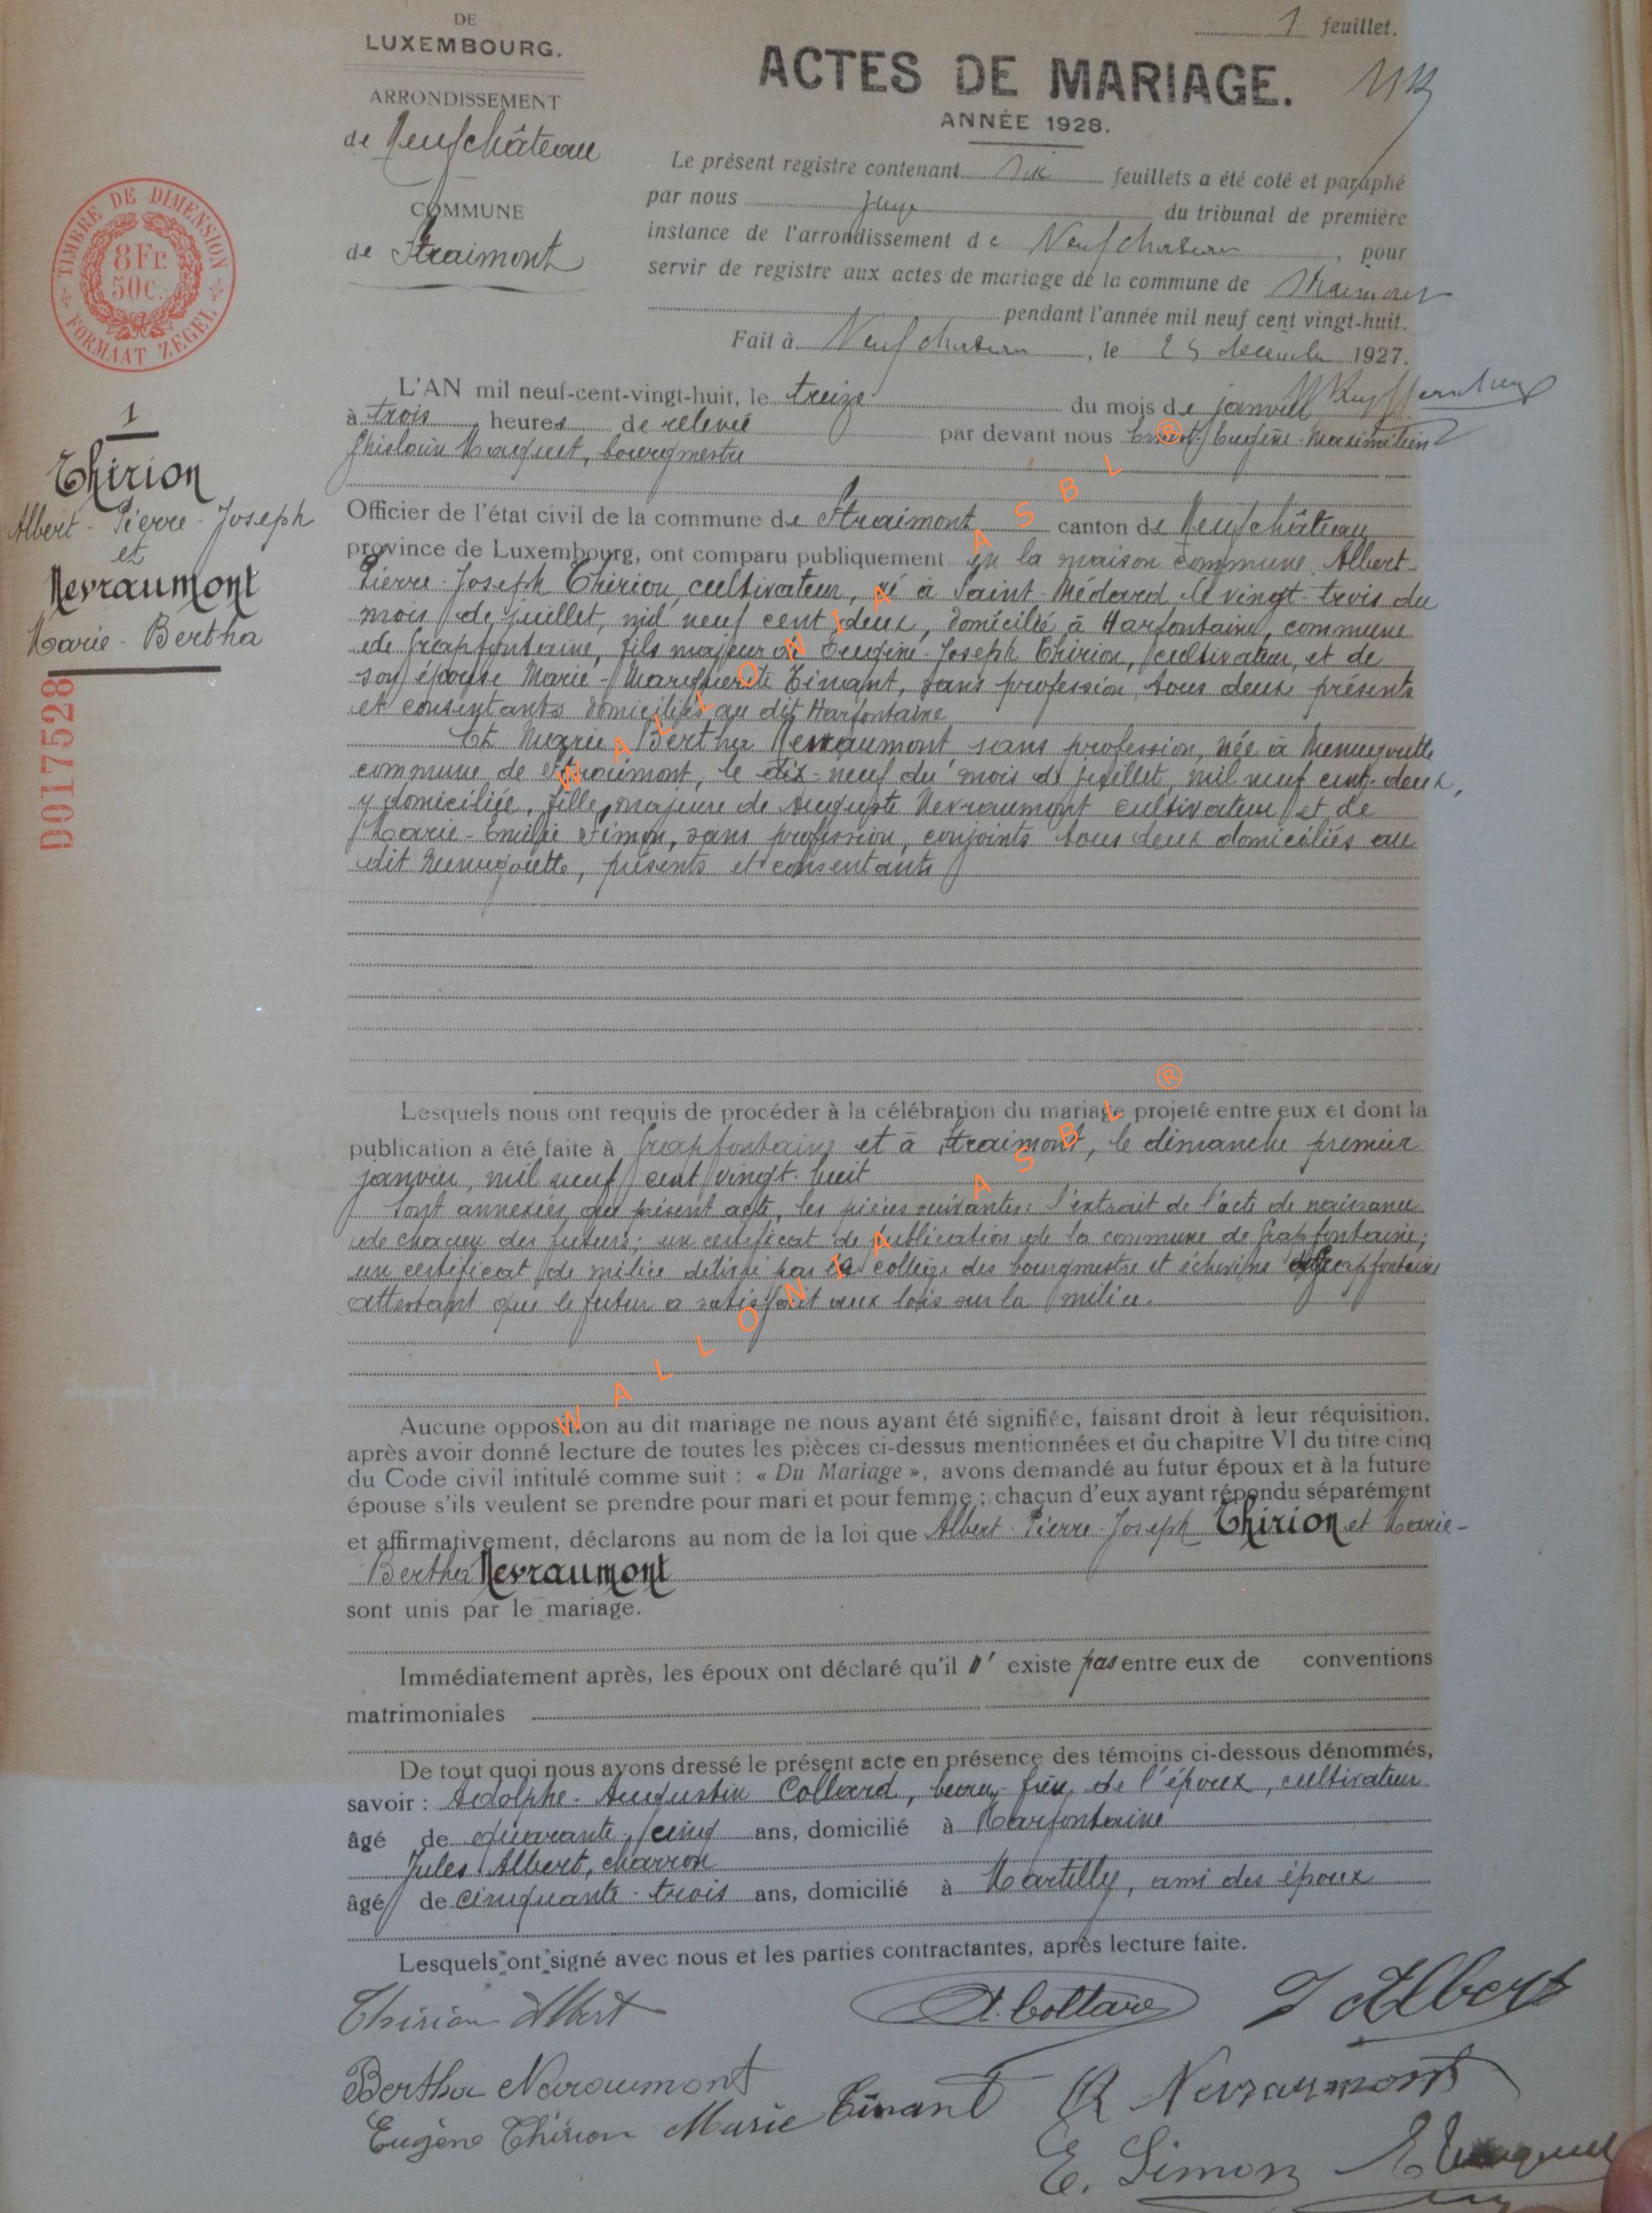 DE
LUXEMBOURG.
ARRONDISSEMENT
de Neufchâteau
COMMUNE
de Straimont
1 feuillet.
ACTES DE MARIAGE.
ANNÉE 1928.
Le présent registre contenant six feuillets a été coté et paraphé
par nous juge du tribunal de première
instance de l'arrondissement de Neufchateau, pour
servir de registre aux actes de mariage de la commune de Straimont
pendant l'année mil neuf cent vingt-huit.
Fait à Neufchateau, le 25 décembre 1927.
TIMBRE DE DIMENSION
8 Fr.
50c.
FORMAAT ZEGEL
1
Thirion
Albert-Pierre-Joseph
et
Nevraumont
Marie-Bertha
D017528
L'AN mil neuf-cent-vingt-huit, le treize du mois de janvier
à trois heures de relevée par devant nous Ernest-Eugène-Maximilien
Ghislain Maquet, bourgmestre
Officier de l'état civil de la commune de Straimont canton de Neufchâteau
province de Luxembourg, ont comparu publiquement en la maison commune Albert-
Pierre-Joseph Thirion, cultivateur, né à Saint-Médard, le vingt-trois du
mois de juillet, mil neuf cent deux, domicilié à Harfontaine, commune
de Grapfontaine, fils majeur de Eugène-Joseph Thirion, cultivateur, et de
son épouse Marie-Marguerite Tinant, sans profession, tous deux présents
et consentants domiciliés au dit Harfontaine
Et Marie-Bertha Nevraumont sans profession, née à Menugoutte
commune de Straimont, le dix-neuf du mois de juillet, mil neuf cent-deux,
y domiciliée, fille majeure de Auguste Nevraumont cultivateur et de
Marie-Emilie Simon, sans profession, conjoints tous deux domiciliés au
dit Menugoutte, présents et consentants
Lesquels nous ont requis de procéder à la célébration du mariage projeté entre eux et dont la
publication a été faite à Grapfontaine et à Straimont, le dimanche premier
janvier, mil neuf cent vingt-huit
Sont annexées au présent acte, les pièces suivantes: l'extrait de l'acte de naissance
de chacun des futurs; un certificat de publication de la commune de Grapfontaine;
un certificat de milice délivré par le collège des bourgmestre et échevins de Grapfontaine
attestant que le futur a satisfait aux lois sur la milice.
Aucune opposition au dit mariage ne nous ayant été signifiée, faisant droit à leur réquisition,
après avoir donné lecture de toutes les pièces ci-dessus mentionnées et du chapitre VI du titre cinq
du Code civil intitulé comme suit : « Du Mariage », avons demandé au futur époux et à la future
épouse s'ils veulent se prendre pour mari et pour femme ; chacun d'eux ayant répondu séparément
et affirmativement, déclarons au nom de la loi que Albert-Pierre-Joseph Thirion et Marie-
Bertha Nevraumont
sont unis par le mariage.
Immédiatement après, les époux ont déclaré qu'il n' existe pas entre eux de conventions
matrimoniales
De tout quoi nous avons dressé le présent acte en présence des témoins ci-dessous dénommés,
savoir : Adolphe-Augustin Collard, beau-frère de l'époux, cultivateur
âgé de quarante-cinq ans, domicilié à Harfontaine
Jules Albert, charron
âgé de cinquante-trois ans, domicilié à Martilly, ami des époux
Lesquels ont signé avec nous et les parties contractantes, après lecture faite.
Thirion Albert A. Collard J Albert
Bertha Nevraumont
Eugène Thirion Marie Tinant A Nevraumont
E. Simon E Maquet
WALLONIA ASBL ®
WALLONIA ASBL ®